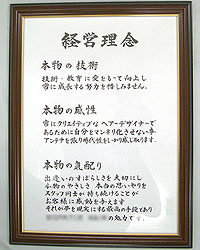 経営理念
本物の技術
技術・教育に愛をもって向上し
常に成長する努力を惜しみません。
本物の感性
常にクリエイティブなヘアーデザイナーで
あるために自分をマンネリ化させない事
アンテナを張り時代性をしっかり感じ取ります。
本物の気配り
出逢いのすばらしさを大切にし
本物のやさしさ 本当の思いやりを
スタッフ同士が持ち続けることが
お客様に感動を与えます
それが夢を現実にする最高の手段であり
の魅力です。